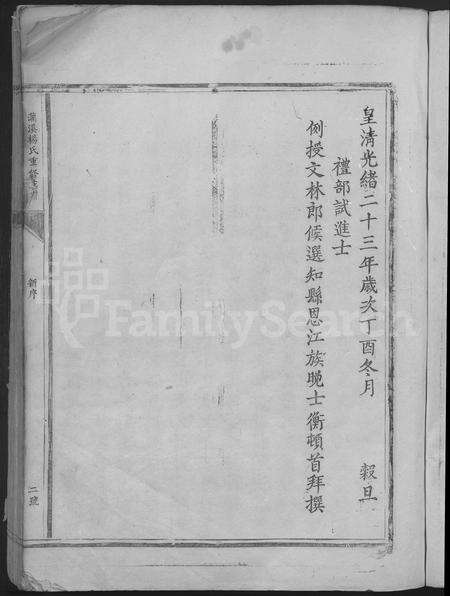 皇清光緒二十三年歲次丁酉冬月 穀旦
禮部試進士
例授文林郎候選知縣恩江族晚士衡頓首拜撰
楊氏重修
新序
二號
FamilySearch